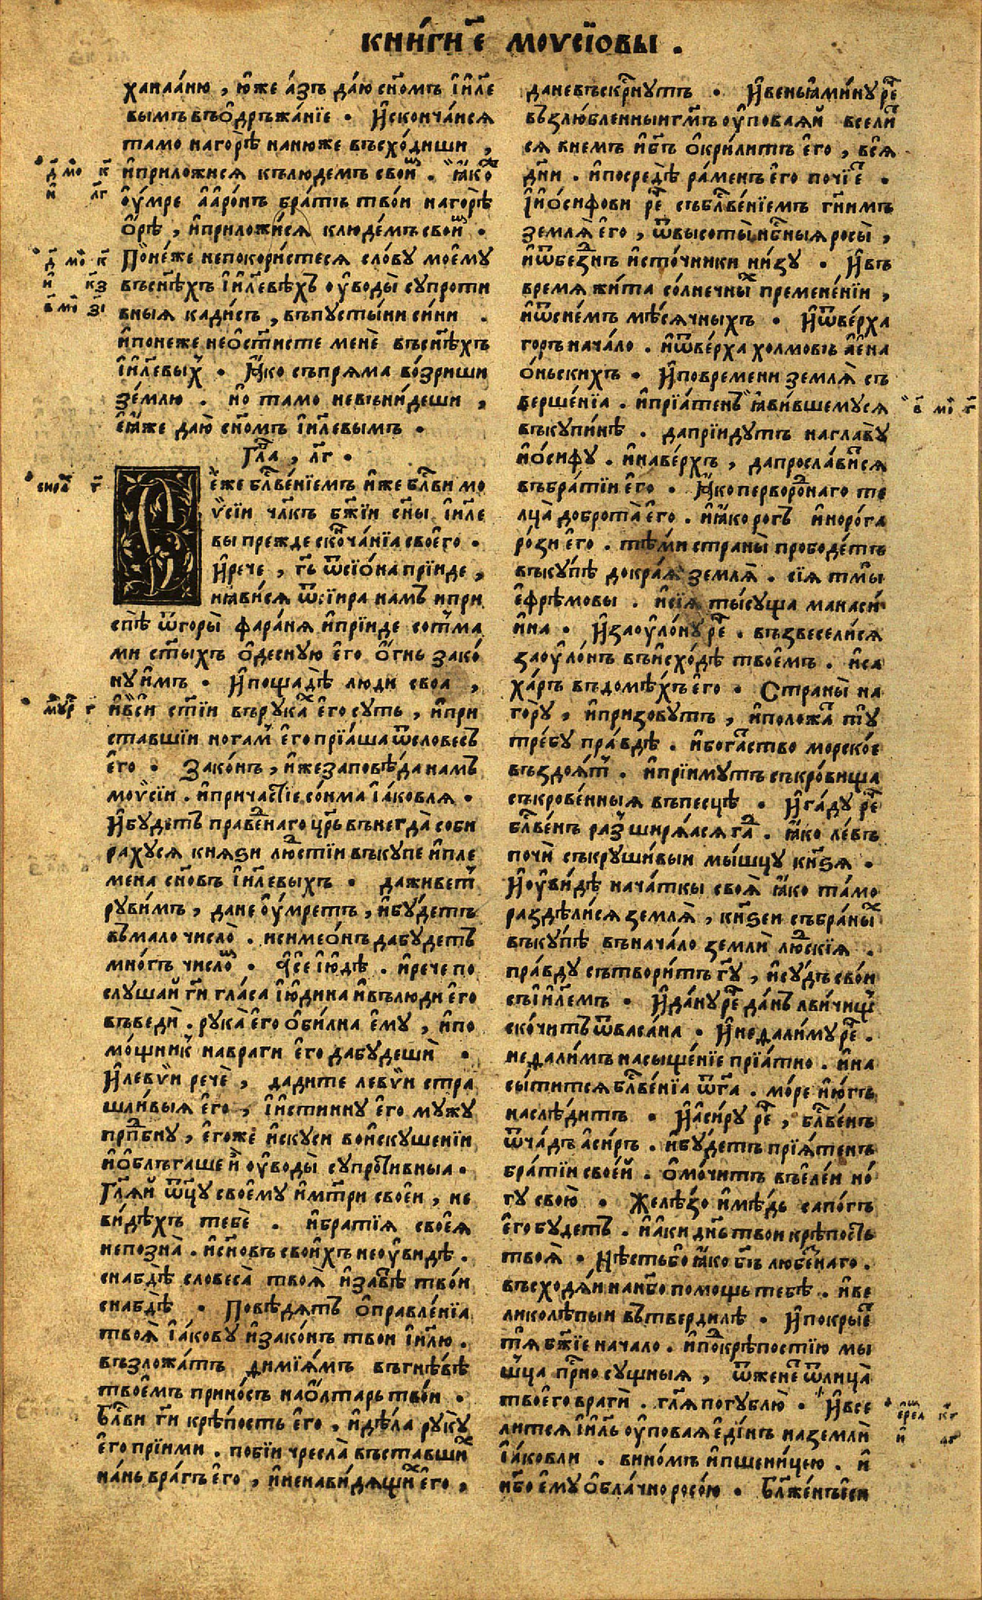 кни́гиⷭ҇ е҃ моусїовы .
ханаа́ню , ю҆же а҆́зъ даю̀ сн҃омъ і҆и҃ле
вымъ въѡ҆дръжа́нїе . И҆скончаи́ся
тамо нагорѣ̀ наню́же въсхо́диши ,
и҆приложи́ся къ лю́демъ свои̑ⷨ . ꙗ҆́коⷤ
ѹ҆́мре а҆арѡ́нъ бра́тъ тво́и нагорѣ̀
ѡ҆́рѣ , и҆приложи́ся клю́демъ свои̑ⷨ .
Поне́же непокори́стеся сло́ву моемꙋ̀
въсн҃ѣхъ і҆и҃левѣхъ ѹ҆воды̀ супроти
вныя кади́съ , въпусты́ни си́ни .
и҆понеже неѡ҆ст҃и́сте менѐ въсн҃ѣхъ
і҆и҃левыхъ . Ꙗ҆́ко съпря́ма во́зриши
зе́млю . и҆ то тамо невни́деши ,
ю҆́же даю̀ сн҃омъ і҆и҃левымъ .
Гла҃ , л҃г .
Се́же бл҃ве́нїемъ и҆́же бл҃ви мо
ѵ҆сїи чл҃къ бж҃їи сн҃ы і҆и҃ле
вы прежде сконⷱ҇ча́нїа своего̀ .
И҆рече , гь҃ ѿсїѡ́на прїи́де ,
и҆ꙗ҆ви́ся ѿсїира намъ и҆при
спѣ̀ ѿгоры̀ фара́ня и҆прїи́де сотма
ми ст҃ыхъ ѡ҆десну́ю е҆го̀ ѡ҆́гнь зако́
ну и҆мъ . И҆пощадѣ̀ лю́ди своа̀ ,
и҆вси́ ст҃їи въ рука̑ⷯ е҆го̀ су́ть , и҆при
ставшїи ногаⷨ е҆го̀ прїа́ша ѿслове́съ
е҆го̀ . Зако́нъ , и҆́же заповѣ́да намъ
моѵсїи . и҆прича́стїе со́нма і҆а́ковля .
И҆бу́детъ праве́днаго цр҃ь вънегда̀ соби
рахуся кня́ѕи лю́дстїи въку́пе и҆пле
мена сн҃овъ і҆и҃левыхъ . да живеⷮ
руви́мъ , да не ѹ҆́мретъ , и҆бу́детъ
въмало число̀ . и симео́нъ да бу́детъ
мно́гъ число́ⷨ . Сѐ і҆ю́дѣ . и҆рече по
слу́шай гп҃и гла́са і҆ю́дина и҆въ лю́ди е҆го̀
въведѝ . рука̀ е҆го̀ ѡ҆би́лна е҆му̀ , и҆по
мо́щникъ навраги̑ е҆го̀ да бу́деши .
И҆левѵ́и речѐ , дади́те левѵ́и стра
шли́выя е҆го̀ , і҆и҆́стинну е҆го̀ му́жу
прⷣпбну , е҆го́же и҆скуси во и҆скуше́нїи
и҆ѡ҆блъга́ше и҆̀ ѹ҆воды̀ супроти́вныа .
Гл҃яй ѿц҃у своему̀ и҆мт҃ри свое́й , не
ви́дѣхъ тебѐ . и҆бра́тїя свое́я
непозна̀ . и҆сн҃овъ свои́хъ неѹ҆ви́дѣ .
снабдѣ̀ словеса̀ твоя̀ и҆завѣ́тъ тво́и
снабдѣ̀ . Повѣ́дятъ ѡ҆правле́нїа
твоя̀ і҆а́кову и҆зако́нъ твои́ і҆и҃лю .
възло́жатъ димїя́мъ въгнѣ́вѣ
твое́мъ прино́съ наѡ҆лта́рь тво́и .
Бл҃ви гп҃и крѣ́пость е҆го̀ . и҆дѣ́ла рукꙋ̀
е҆го̀ прїими . побїи чресла̀ въста́вшиⷯ
нань врагъ е҆го̀ , и҆ненави́дящиⷯ е҆го̀ ,
да не въскрⷭ҇нутъ . И҆веньами́ну реⷱ҇
възлю́бленный гм҃ъ ѹ҆пова́яй вселиⷮ
ся в нем̾ъ и҆бг҃ъ ѡ҆крили́тъ е҆го̀ , вся̀
дн҃и . и҆посредѣ̀ ра́менъ е҆го̀ почїе́ⷮ .
І҆ѡ҆́сифови реⷱ҇ събл҃ве́нїемъ гн҃имъ
земля̀ е҆го̀ , ѿвысоты̀ нб҃ныя росы̀ ,
и҆ѿбе́зднъ и҆сто́чники ни́зу . И҆въ
вре́мя жи́та со́лнечныⷯ премене́нїи ,
и҆ѿсне́мъ мѣ́сячныхъ . И҆ѿве́рха
горъ нача́ло . и҆ѿве́рха холмовъ а҆е́на
о́ньскихъ . И҆по вре́мени земля̀ съ
верше́нїа . и҆прїа́тенъ ꙗ҆ви́вшемуся
въкупи́нѣ . да прїи́дутъ наглавꙋ̀
и҆ѡ҆́сифу . и҆наве́рхъ , да просла́вися
въбра́тїи е҆го̀ . Ꙗ҆́ко первороⷣнаго те
лца̀ доброта̀ е҆го̀ . и҆ꙗ҆ко рогъ и҆норо́га
ро́зи е҆го̀ . тѣ́ми страны̀ прободе́тъ
въку́пѣ до кра́я земля̀ . сїя тмы̀
е҆фре́мовы . и҆сїя ты́суща манаси́
и҆на . И҆заѹ҆ло́ну реⷱ҇ . възвесели́ся
заѹ҆ло́нъ въи҆схо́дѣ твое́мъ . и҆са
ха́ръ въдомѣ́хъ е҆го̀ . Страны̀ на
го́ру , и҆призову́тъ , и҆положа́ⷮ ту
тре́бу пра́вдѣ . и҆бога́тство морско́е
въздоя́тⷮ . и҆прїимутъ съкро́вища
съкрове́нныя въпесцѣ̀ . И҆га́ду реⷱ҇
бл҃ве́нъ разъширя́яся гаⷣ . ꙗ҆ко ле́въ
почи̑ съкруши́выи мы́шцу кн҃ѕя .
И҆ѹ҆ви́дѣ нача́ткы своя̀ ꙗ҆ко та́мо
раздѣли́ся земля̀ , кн҃ѕеи съ бра́ныⷯ
въку́пѣ въ нача́ло земли̑ лю́дскїя .
пра́вду сътвори́тъ гу҃ , и҆су́дъ сво́и
съ і҆и҃лемъ . И҆да́ну реⷱ҇ да́нъ льви́чищъ
ско́читъ ѿваса́на . И҆недали́му реⷱ҇ .
недали́мъ насыще́нїе прїа́тно . и҆на
сы́тится бл҃ве́нїа ѿга҃ . мо́ре и҆ю҆́гъ
наслѣ́дитъ . И҆а҆си́ру реⷱ҇ , бл҃ве́нъ
ѿча́дъ а҆си́ръ . и҆бу́детъ прїя́тенъ
бра́тїи свое́й . ѡ҆мо́читъ въе҆ле́и но́
гу свою̀ . Желѣ́зо и҆мѣ́дь сапо́гъ
е҆го̀ бу́детъ . и҆а҆ки дн҃ь твои́ крѣ́пость
твоя̀ . Нѣ́сть бо ꙗ҆ко бг҃ъ любе́знаго .
въсходя́й нанб҃о помо́щь тебѣ̀ . и҆ве
ликолѣ́пыи въ тверди́лѣ . И҆покры́еⷮ
тя̀ бж҃їе нача́ло . и҆поⷣ крѣ́постїю мы́
шца прⷭ҇но су́щныя , ѿжене́ⷮ ѿлица̀
твоего̀ враги̑ . гл҃я погублю̀ . И҆все
ли́тся і҆и҃ль ѹ҆пова́я е҆ди́нъ на земли̑
і҆а́ковли . вино́мъ и҆пшени́цею . и҆
нб҃о е҆му̀ ѡ҆́блачно росо́ю . Бл҃же́нъ е҆си